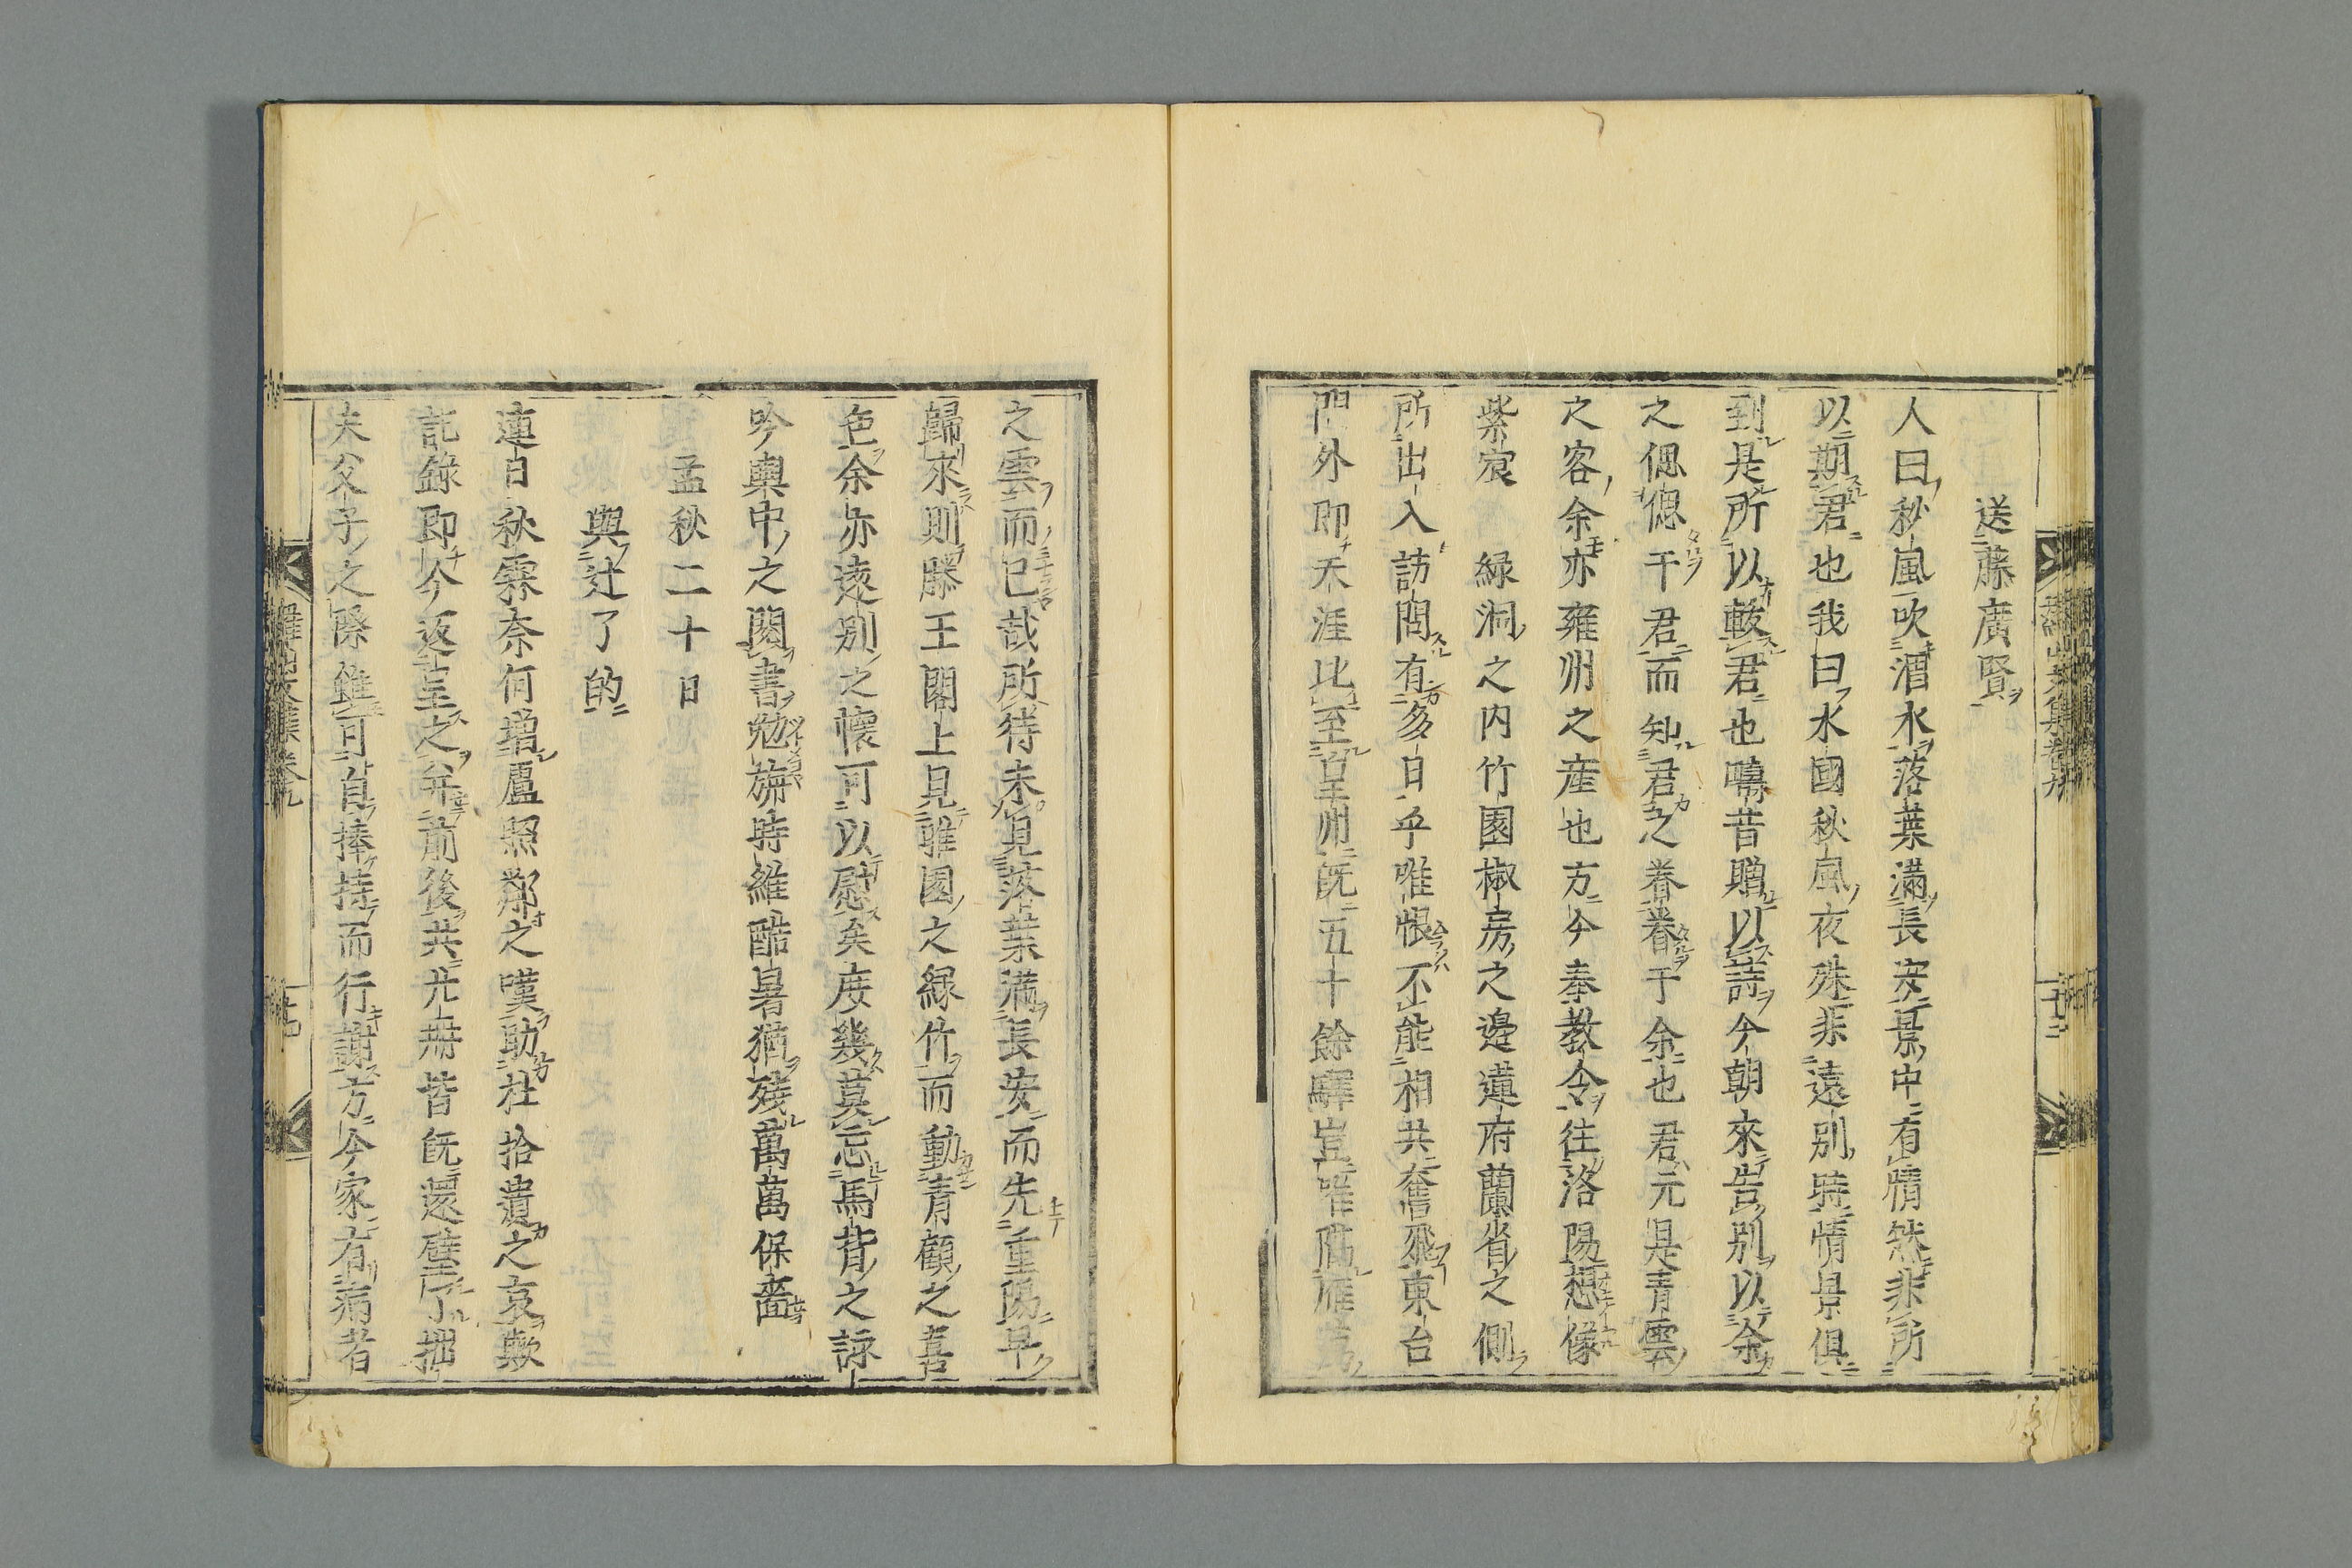 送藤廣賢
人曰秋風吹渭水落葉滿長安景中有情然非所
以期君也我曰水國秋風夜殊非遠別時情景俱
到是所以較君也疇昔贈以詩今朝來告別以余
之偲偲于君而知君之眷眷于余也君元是青雲
之客余亦雍州之産也方今奉教令往洛陽想像
紫宸 緑洞之内竹園椒房之邊蓮府蘭省之側
所出入訪問有多日乎唯恨不能相共奮飛東台
門外即禾涯比至皇州既五十餘驛豈唯隔雁
之雲而已哉所待未見落葉滿長安而先重陽早
歸來則滕王閣上見雎園之緑竹而動青顧之喜
色余亦遠別之懷可以慰矣庶幾莫忘馬背之詠
吟輿中之閱書勉旃時維酷暑猶殘萬萬保嗇
孟秋二十日
與辻了的
連日秋霖奈何增盧照鄰之嘆助杜拾遺之哀歟
託錄即今返呈之幷前後共九冊皆既還璧小抛
夫父子之際雖可自捧持而行謝方今家有病者
羅山文集卷九